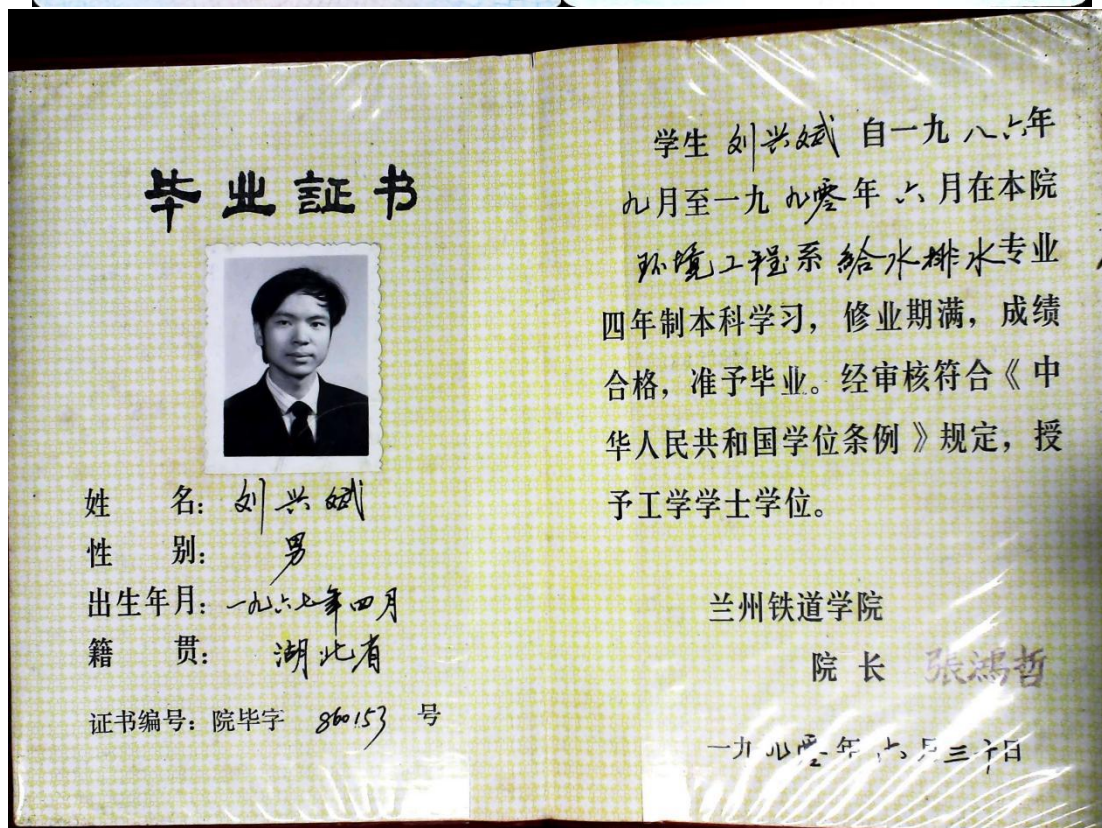 毕业証书
姓名：刘兴斌
性别：男
出生年月：一九六七年四月
籍贯：湖北省
证书编号：院毕字 860153 号
学生 刘兴斌 自一九八六年
九月至一九九零年六月在本院
环境工程系 給水排水专业
四年制本科学习，修业期满，成绩
合格，准予毕业。经审核符合《中
华人民共和国学位条例》规定，授
予工学学士学位。
兰州铁道学院
院长 張鴻哲
一九九零年六月三十日